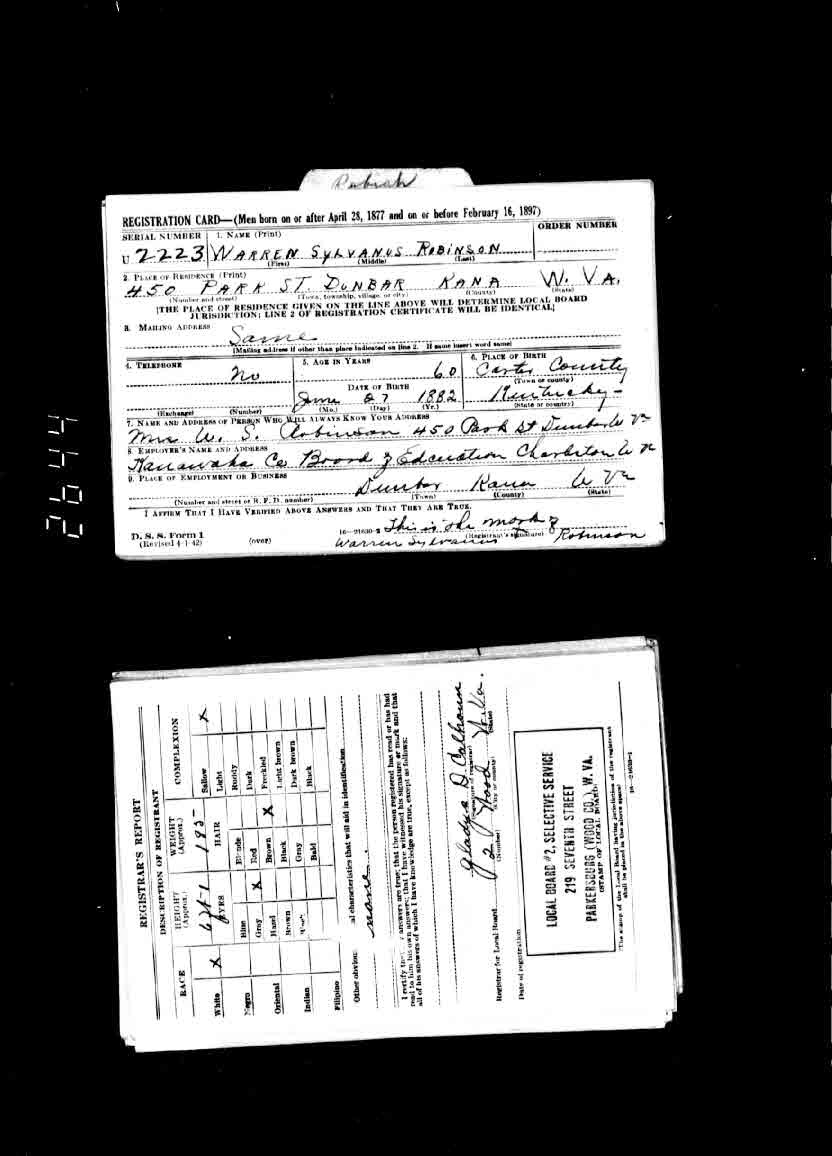 Robiah
REGISTRATION CARD—(Men born on or after April 28, 1877 and on or before February 16, 1897)
SERIAL NUMBER 1. NAME (Print) ORDER NUMBER
U 2223 WARREN SYLVANUS ROBINSON
(First) (Middle) (Last)
2. PLACE OF RESIDENCE (Print)
450 PARK ST. DUNBAR KANA W. VA.
(Number and street) (Town, township, village, or city) (County) (State)
[THE PLACE OF RESIDENCE GIVEN ON THE LINE ABOVE WILL DETERMINE LOCAL BOARD
JURISDICTION; LINE 2 OF REGISTRATION CERTIFICATE WILL BE IDENTICAL]
3. MAILING ADDRESS
Same
[Mailing address if other than place indicated on line 2. If same insert word same]
4. TELEPHONE 5. AGE IN YEARS 6. PLACE OF BIRTH
no 60 Carter County
(Town or county)
DATE OF BIRTH
June 27 1882 Kentucky
(Exchange) (Number) (Mo.) (Day) (Yr.) (State or country)
7. NAME AND ADDRESS OF PERSON WHO WILL ALWAYS KNOW YOUR ADDRESS
Mrs W. S. Robinson 450 Park St Dunbar W Va
8. EMPLOYER'S NAME AND ADDRESS
Kanawaha Co Board of Edcuation Charleston W Va
9. PLACE OF EMPLOYMENT OR BUSINESS
Dunbar Kana W Va
(Number and street or R. F. D. number) (Town) (County) (State)
I AFFIRM THAT I HAVE VERIFIED ABOVE ANSWERS AND THAT THEY ARE TRUE.
D. S. S. Form 1
(Revised 4-1-42) (over) 16—21630-2 This is the mark of
(Registrant's signature)
Warren Sylvanus Robinson
2644
REGISTRAR'S REPORT
DESCRIPTION OF REGISTRANT
RACE HEIGHT (Approx.) WEIGHT (Approx.) COMPLEXION
6ft-1 185
EYES HAIR
White X Sallow X
Light
Blue Blonde Ruddy
Negro Gray X Red Dark
Oriental Hazel Brown X Freckled
Brown Black Light brown
Indian Gray Dark brown
Bald Black
Filipino
Other obvious al characteristics that will aid in identification
none.
I certify answers are true; that the person registered has read or has had
read to him his own answers; that I have witnessed his signature or mark and that
all of his answers of which I have knowledge are true, except as follows:
Gladys D. Calhoun
(Signature of registrar)
Registrar for Local Board 2 Wood W.Va.
(Number) (City or county) (State)
Date of registration
LOCAL BOARD #2, SELECTIVE SERVICE
219 SEVENTH STREET
PARKERSBURG (WOOD CO.), W. VA.
(STAMP OF LOCAL BOARD)
(The stamp of the Local Board having jurisdiction of the registrant
shall be placed in the above space)